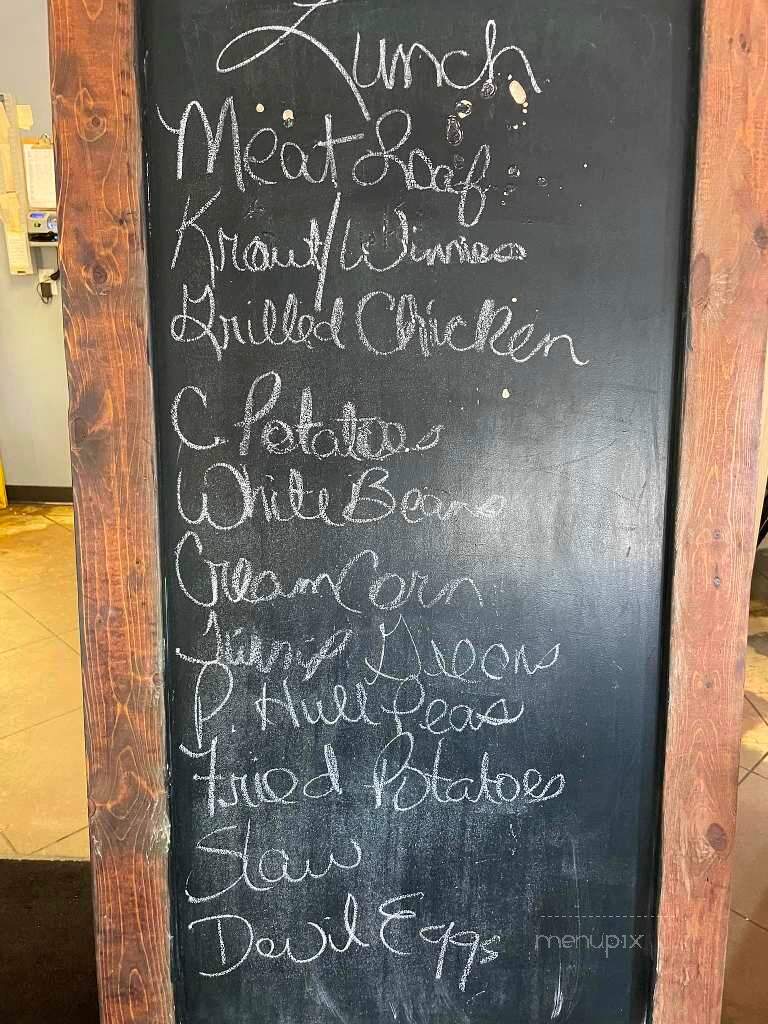 Lunch
Meat Loaf
Kraut/Winnies
Grilled Chicken
C. Potatoes
White Beans
Cream Corn
Turnip Greens
P. Hull Peas
Fried Potatoes
Slaw
Devil Eggs
menupix